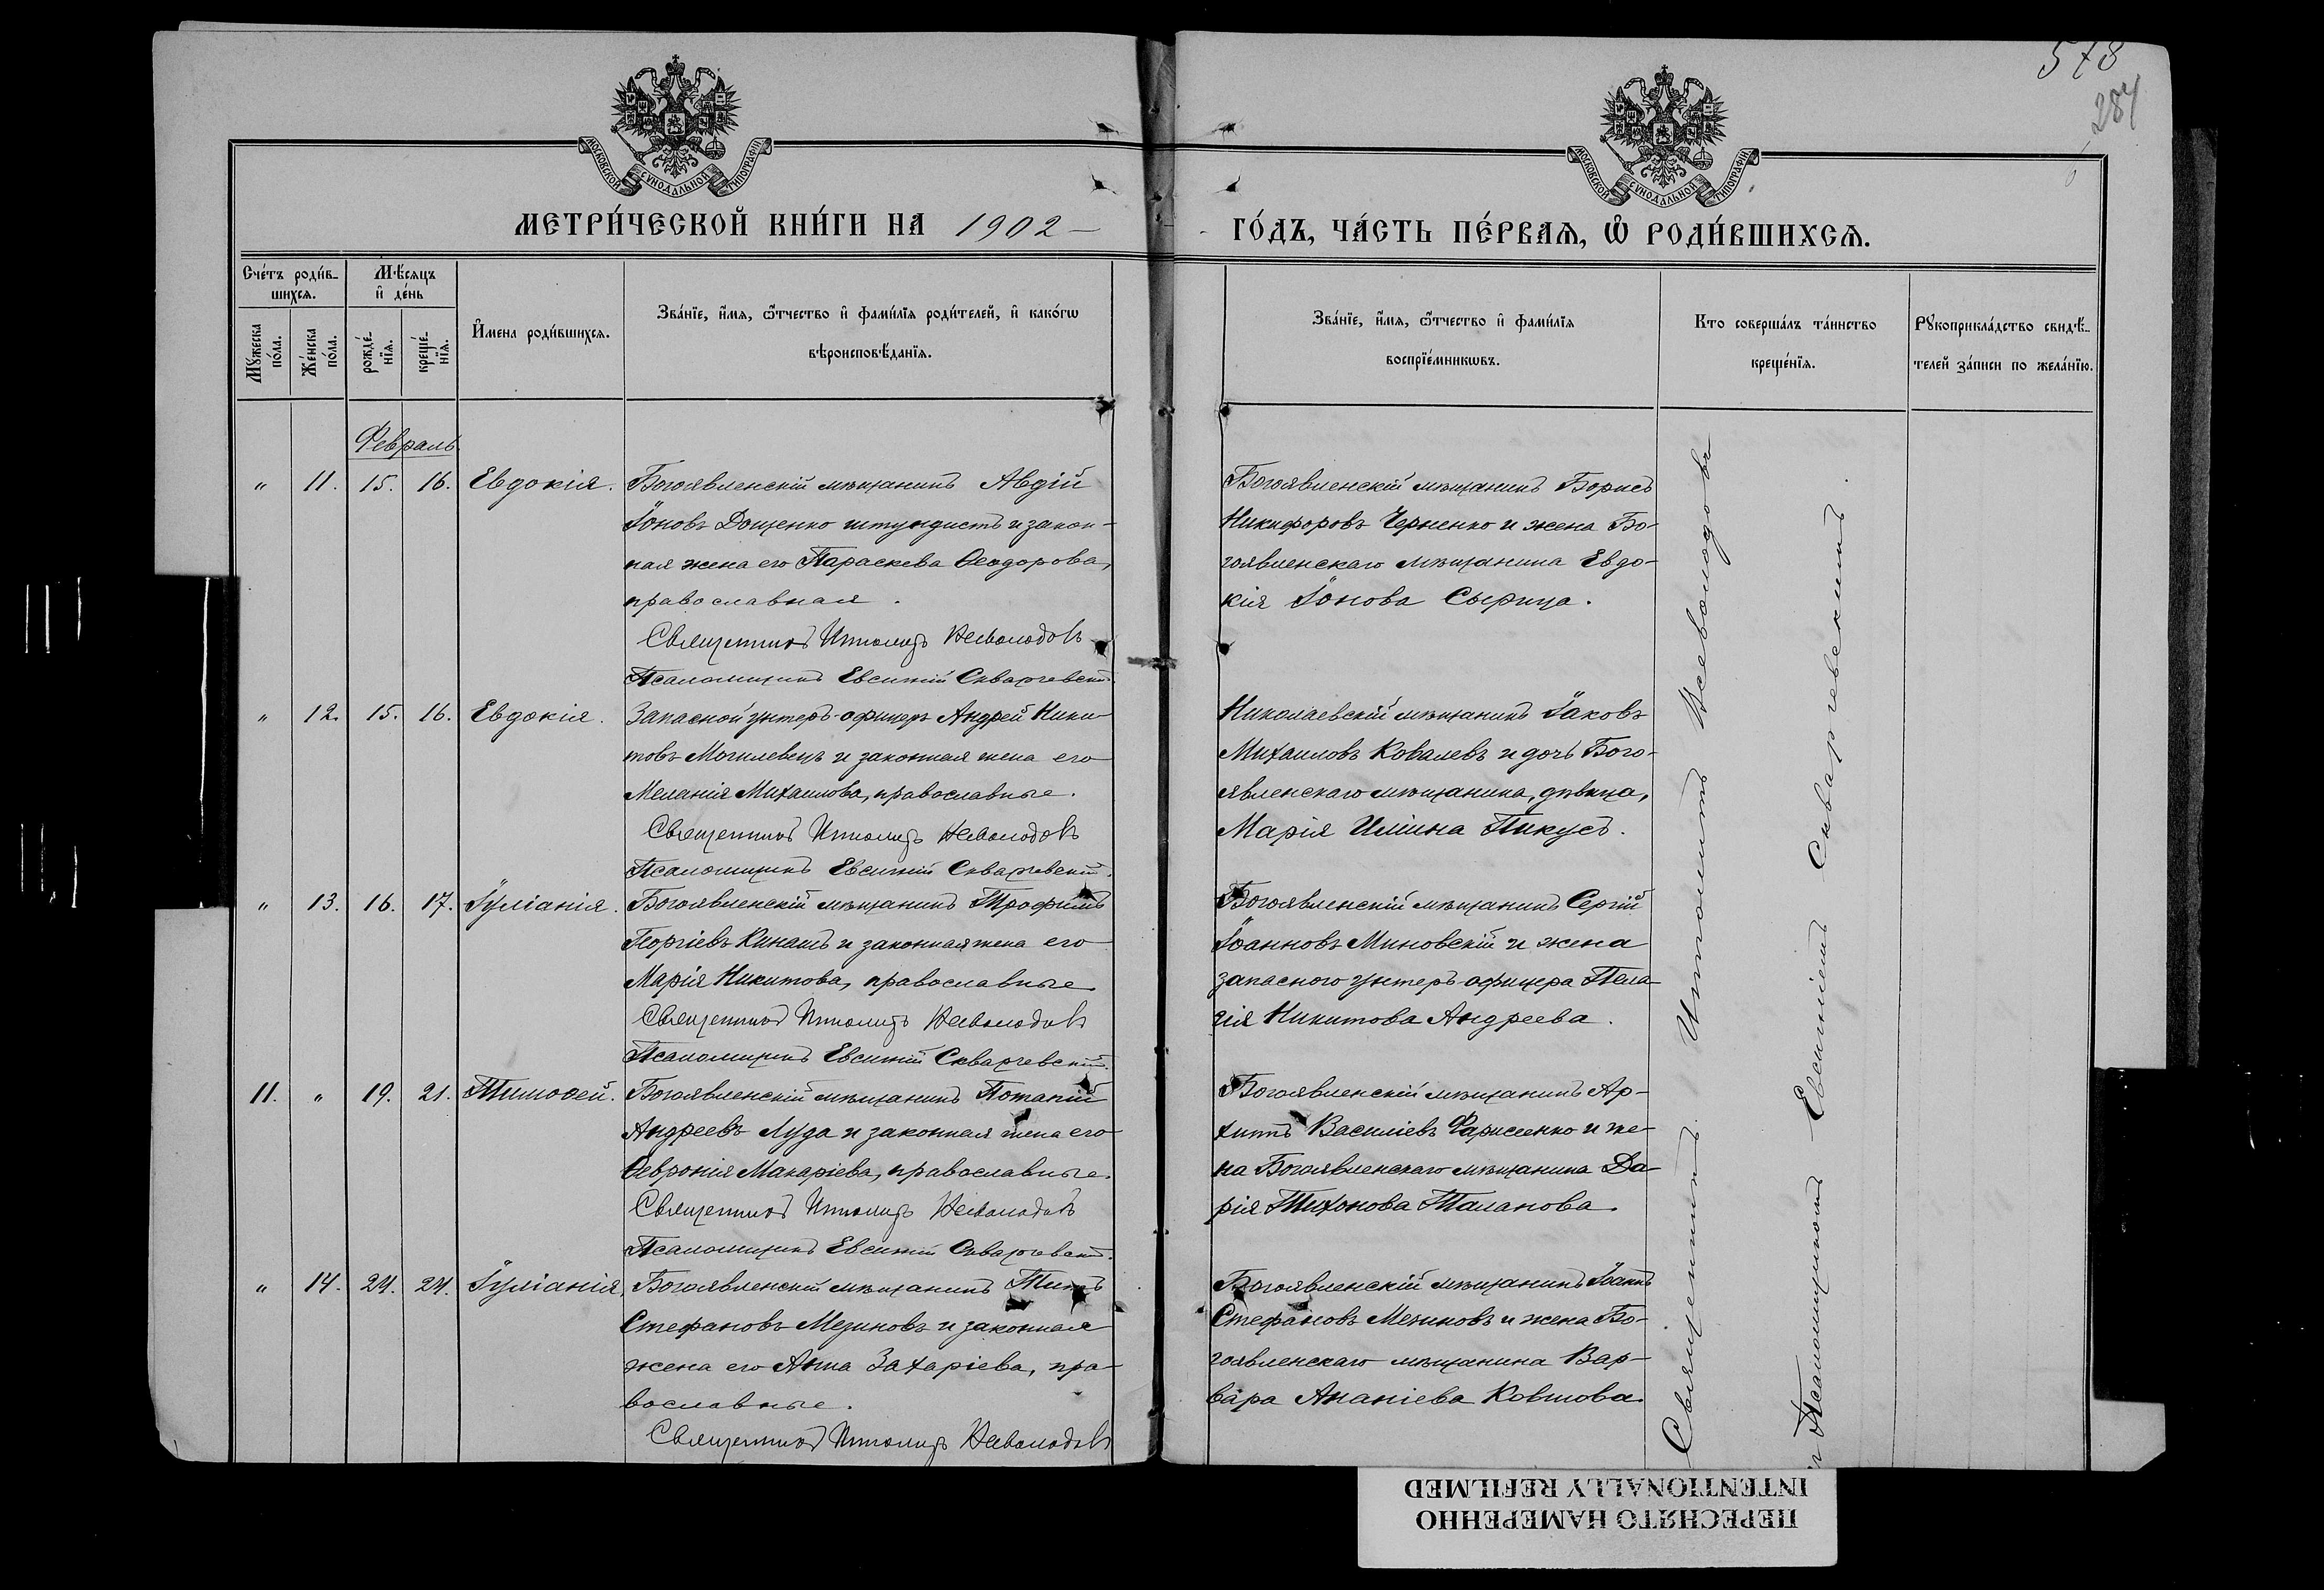 578
284
МОСКОВСКОЙ СѴНОДАЛЬНОЙ ТИПОГРАФІИ
МОСКОВСКОЙ СѴНОДАЛЬНОЙ ТИПОГРАФІИ
МЕТРИ́ЧЕСКОЙ КНИ́ГИ НА 1902
ГО́ДЪ, ЧА́СТЬ ПЕ́РВАѦ, Ѽ РОДИ́ВШИХСѦ.
Сче́тъ роди́в-
шихсѧ.
Мѣ́сѧцъ
и҆ де́нь
Мꙋ́жеска
по́ла.
Же́нска
по́ла.
рожде́-
нїѧ.
креще́-
нїѧ.
И҆мена роди́вшихсѧ.
Зва́нїе, и҆́мѧ, ѻ҆́тчество и҆ фами́лїѧ роди́телей, и҆ како́гѡ
вѣроисповѣ́данїѧ.
Зва́нїе, и҆́мѧ, ѻ҆́тчество и҆ фами́лїѧ
воспрїе́мникѡвъ.
Кто соверша́лъ та́инство
креще́нїѧ.
Рꙋкоприкла́дство свидѣ́-
телей за́писи по жела́нїю.
Февраль.
" 11. 15. 16. Евдокія. Богоявленскій мѣщанинъ Авдій
Іоновъ Доценко штундистъ и закон-
ная жена его Параскева Ѳеодорова,
православная.
Священникъ Ипполитъ Всеволодовъ
Псаломщикъ Евсигній Скваржевскій.
Богоявленскій мѣщанинъ Борисъ
Никифоровъ Черненко и жена Бо-
гоявленскаго мѣщанина Евдо-
кія Іонова Сырица.
" 12. 15. 16. Евдокія. Запасной унтеръ-офицеръ Андрей Ники-
товъ Могилевецъ и законная жена его
Меланія Михаилова, православные.
Священникъ Ипполитъ Всеволодовъ
Псаломщикъ Евсигній Скваржевскій.
Николаевскій мѣщанинъ Іаковъ
Михаиловъ Ковалевъ и дочь Бого-
явленскаго мѣщанина, дѣвица,
Марія Иліина Пикусъ.
" 13. 16. 17. Іуліанія. Богоявленскій мѣщанинъ Трофимъ
Георгіевъ Кинашъ и законная жена его
Марія Никитова, православные
Священникъ Ипполитъ Всеволодовъ
Псаломщикъ Евсигній Скваржевскій.
Богоявленскій мѣщанинъ Сергій
Іоанновъ Миновскій и жена
запасного унтеръ-офицера Пела-
гія Никитова Андреева.
11. " 19. 21. Тимоѳей. Богоявленскій мѣщанинъ Потапій
Андреевъ Луда и законная жена его
Ѳевронія Макаріева, православные.
Священникъ Ипполитъ Всеволодовъ
Псаломщикъ Евсигній Скваржевскій.
Богоявленскій мѣщанинъ Ар-
хиппъ Василіевъ Фарисеенко и же-
на Богоявленскаго мѣщанина Да-
рія Тихонова Таланова.
" 14. 24. 24. Іуліанія. Богоявленскій мѣщанинъ Титъ
Стефановъ Мезиновъ и законная
жена его Анна Захаріева, пра-
вославные.
Священникъ Ипполитъ Всеволодовъ
Богоявленскій мѣщанинъ Іоаннъ
Стефановъ Мезиновъ и жена Бо-
гоявленскаго мѣщанина Вар-
вара Ананіева Ковтова.
Священникъ Ипполитъ Всеволодовъ
и Псаломщикомъ Евсигніемъ Скваржевскимъ.
ПЕРЕСНЯТО НАМЕРЕННО
INTENTIONALLY REFILMED